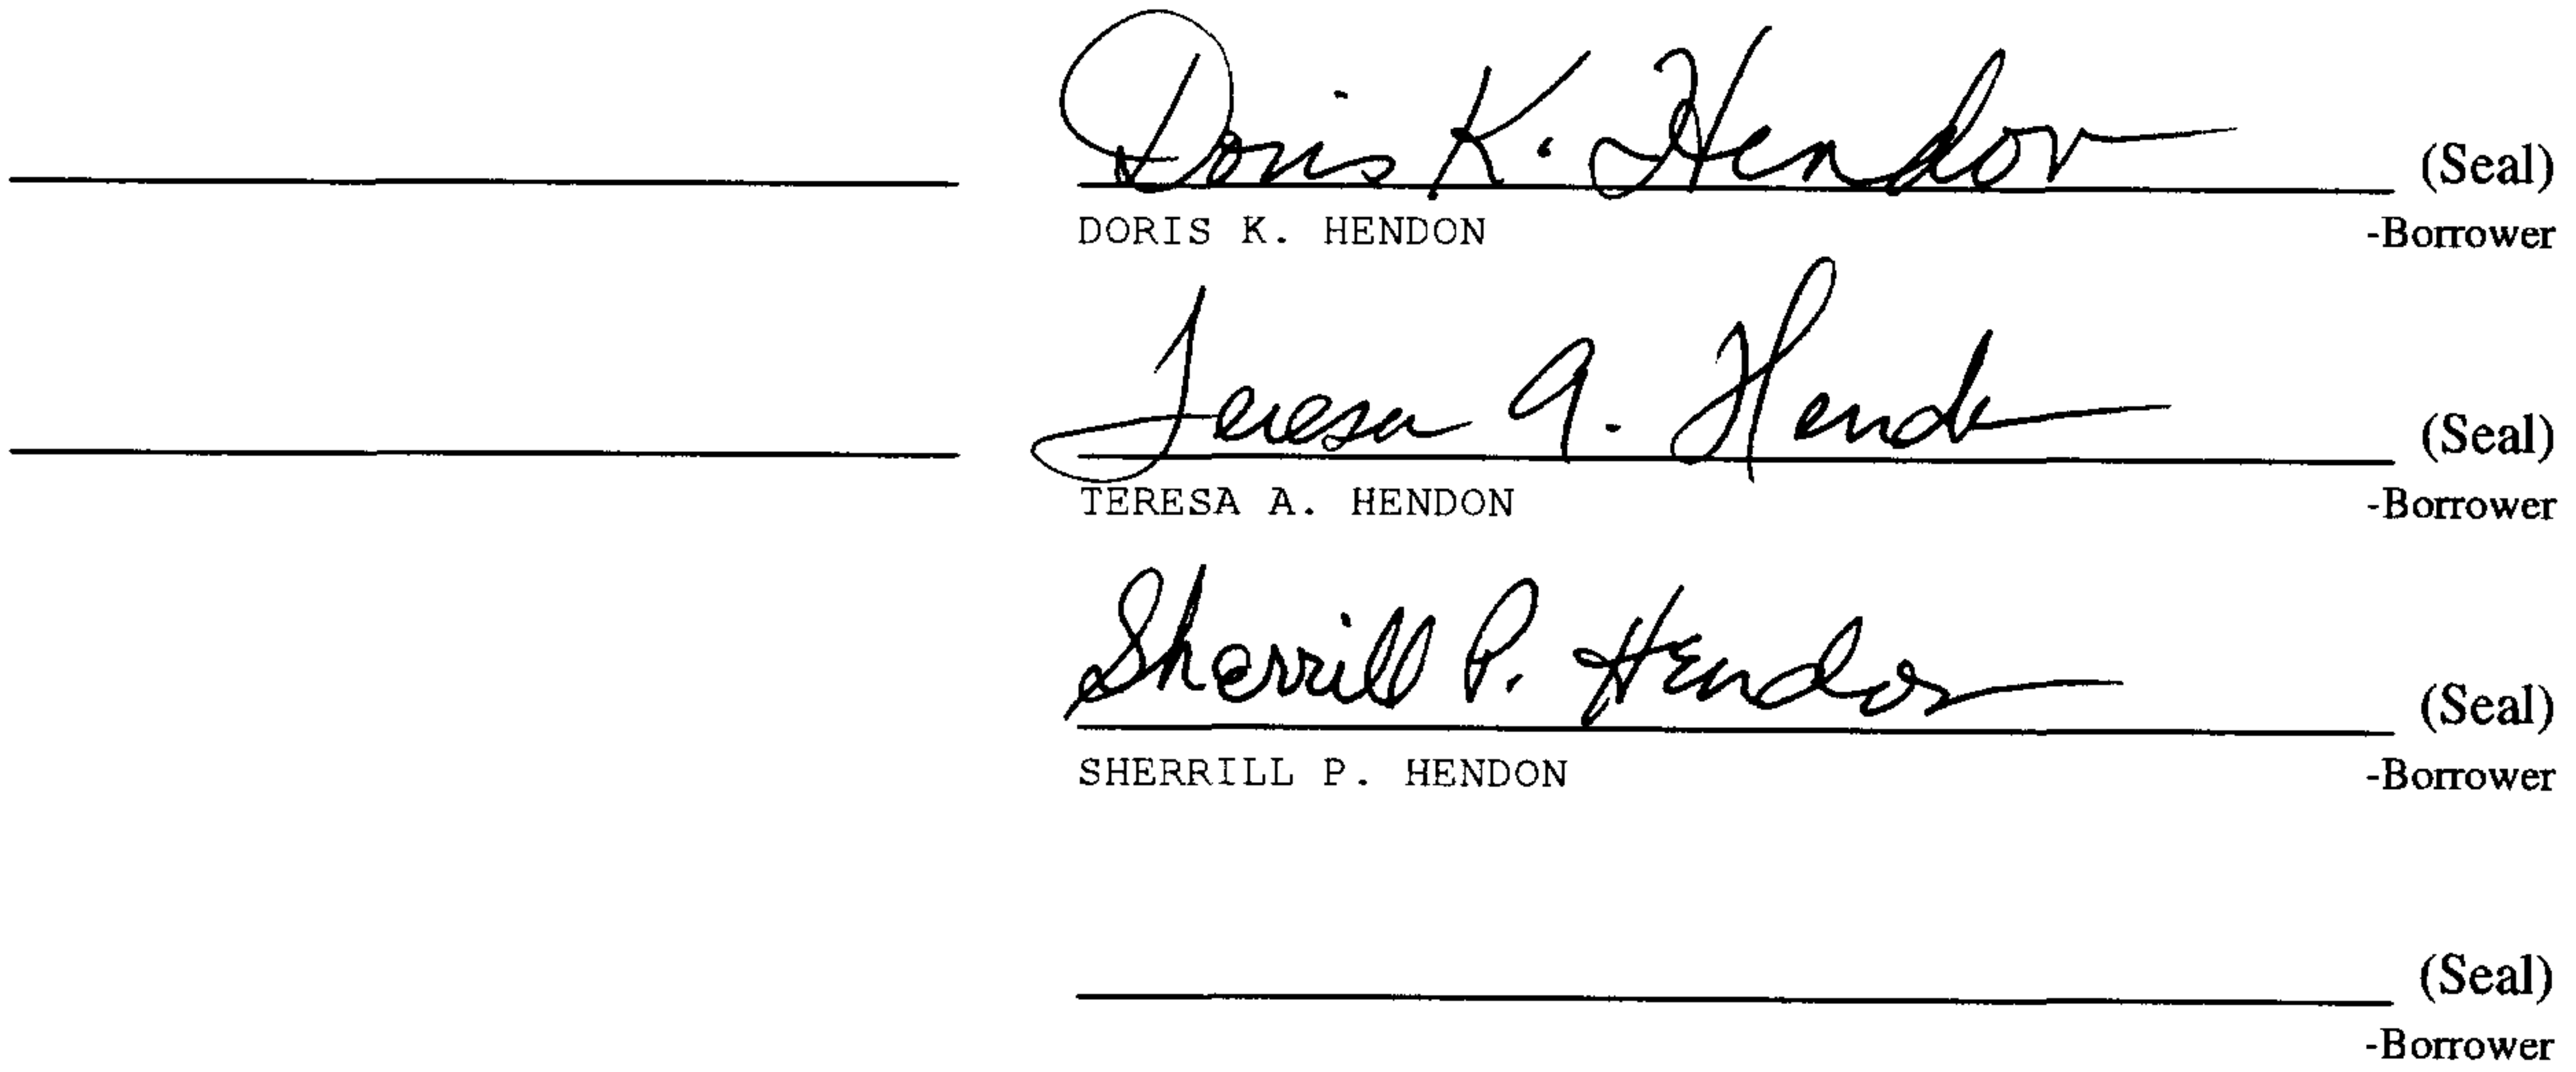 Doris K. Hendon (Seal)
DORIS K. HENDON -Borrower
Teresa A. Hendon (Seal)
TERESA A. HENDON -Borrower
Sherrill P. Hendon (Seal)
SHERRILL P. HENDON -Borrower
(Seal)
-Borrower